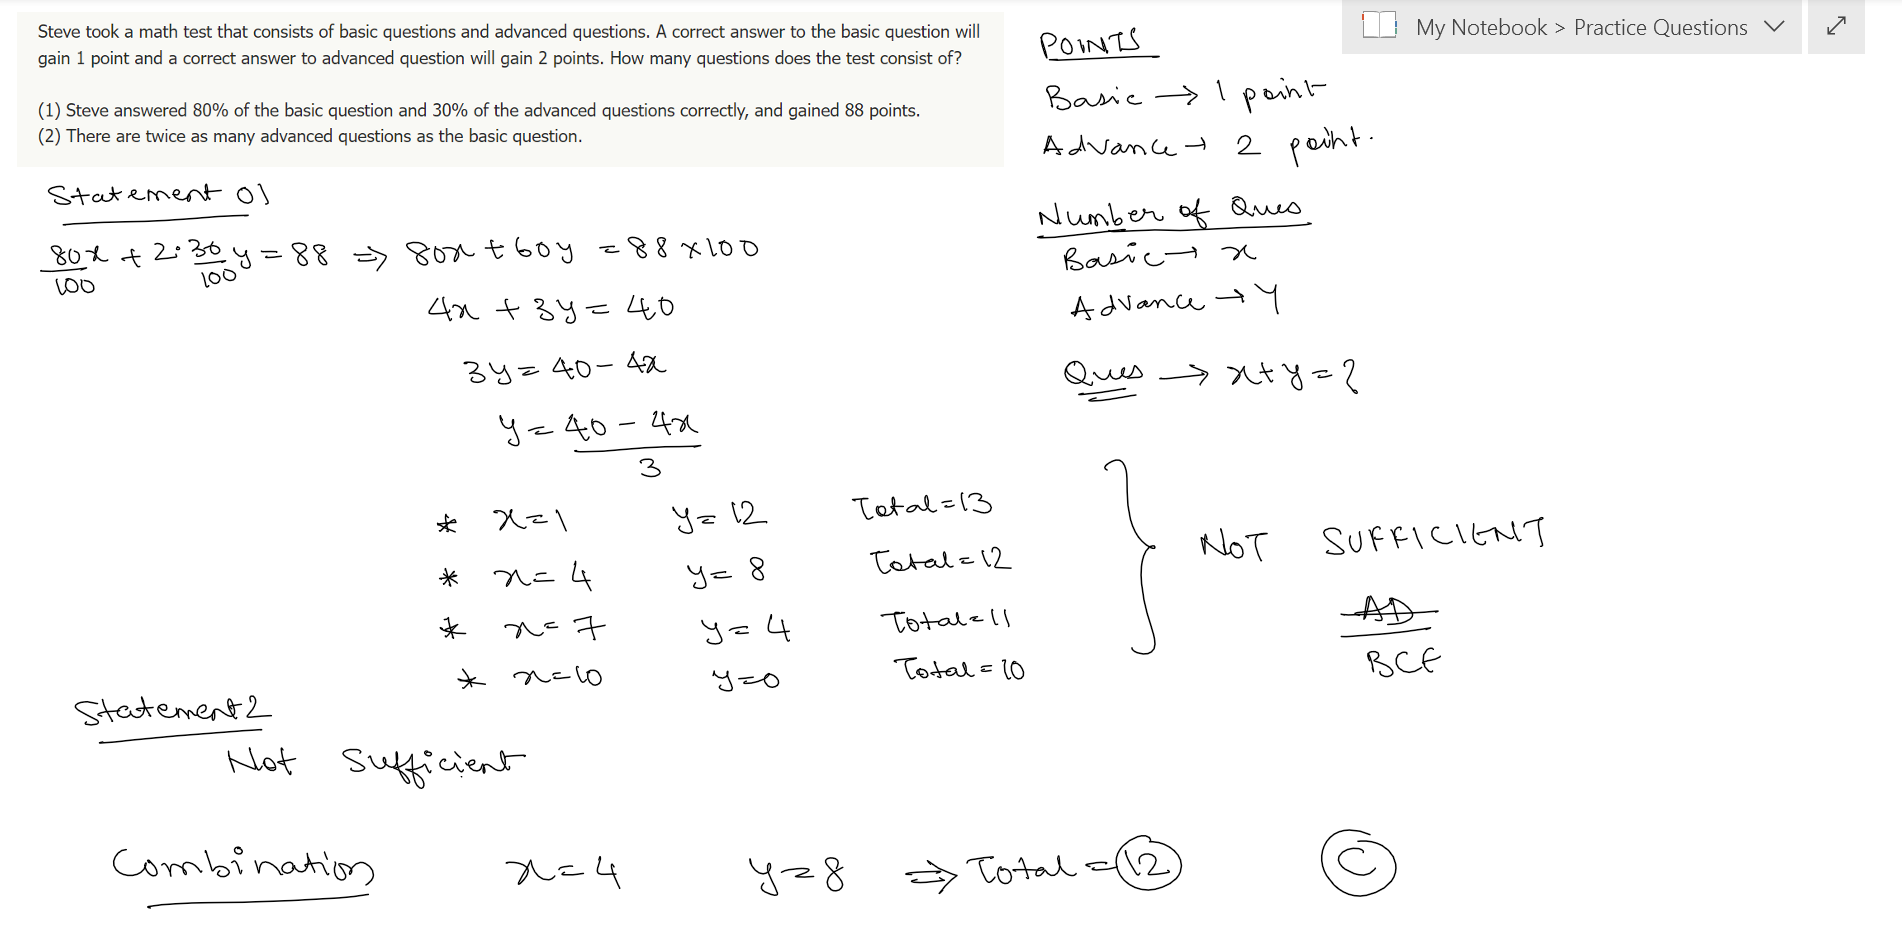 Steve took a math test that consists of basic questions and advanced questions. A correct answer to the basic question will
gain 1 point and a correct answer to advanced question will gain 2 points. How many questions does the test consist of?
(1) Steve answered 80% of the basic question and 30% of the advanced questions correctly, and gained 88 points.
(2) There are twice as many advanced questions as the basic question.
My Notebook > Practice Questions
POINTS
Basic → 1 point
Advance → 2 point.
Number of Ques
Basic → x
Advance → y
Ques → x+y=?
Statement 01
80x/100 + 2·30/100 y = 88 ⇒ 80x + 60y = 88 × 100
4x + 3y = 40
3y = 40 - 4x
y = 40 - 4x
3
* x=1 y=12 Total=13
* x=4 y=8 Total=12
* x=7 y=4 Total=11
* x=10 y=0 Total=10
NOT SUFFICIENT
AD
BCE
Statement 2
Not Sufficient
Combination x=4 y=8 ⇒ Total=12 C